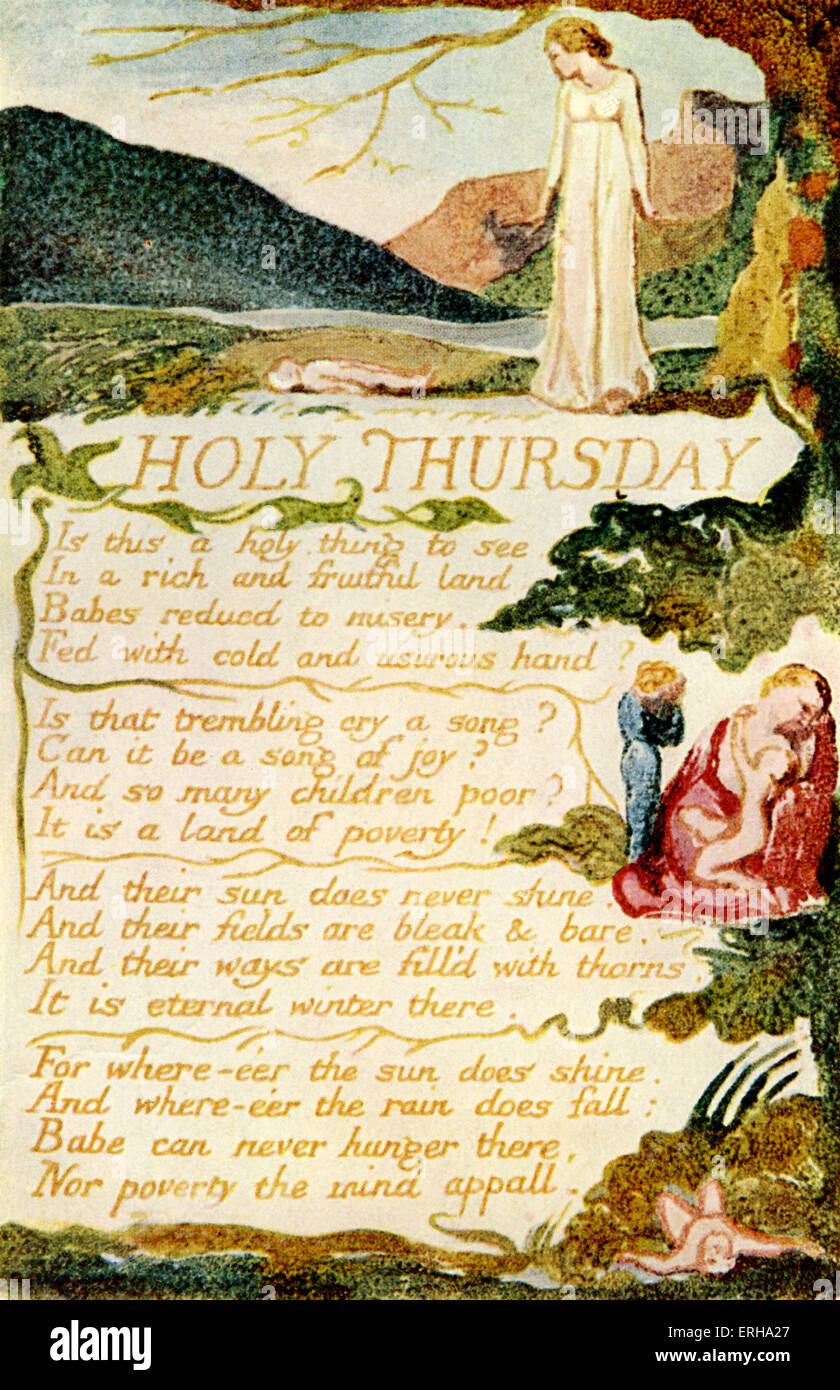 HOLY THURSDAY
Is this a holy thing to see
In a rich and fruitful land
Babes reducd to misery.
Fed with cold and usurous hand?
Is that trembling cry a song?
Can it be a song of joy?
And so many children poor?
It is a land of poverty!
And their sun does never shine.
And their fields are bleak & bare.
And their ways are fill'd with thorns.
It is eternal winter there.
For where-e'er the sun does shine.
And where-e'er the rain does fall:
Babe can never hunger there,
Nor poverty the mind appall.
alamy
alamy
a
a
a
a
alamy stock photo
ERHA27
www.alamy.com